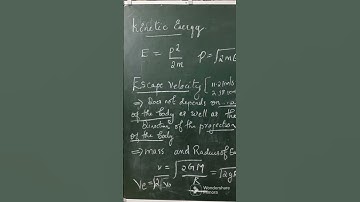 Kinetic Energy
E = p²/2m p = √2mE
Escape velocity [11.2 km/s
⇒ Does not depends on
of the body as well as the
Direction of the projection
of the body
⇒ mass and Radius of
v = √2GM/R = √2gR
Ve = √2 Vo
Wondershare